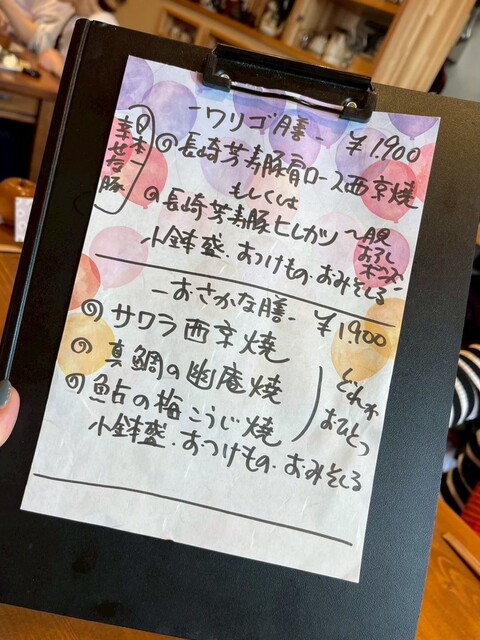 -ワリゴ膳- ¥1,900
日本一幸せな豚
長崎芳寿豚肩ロース西京焼
もしくは
長崎芳寿豚ヒレカツ
おろしポンズ
小鉢盛.おつけもの.おみそしる
-おさかな膳- ¥1900
サワラ西京焼
真鯛の幽庵焼
鮎の梅こうじ焼
どれかおひとつ
小鉢盛.おつけもの.おみそしる